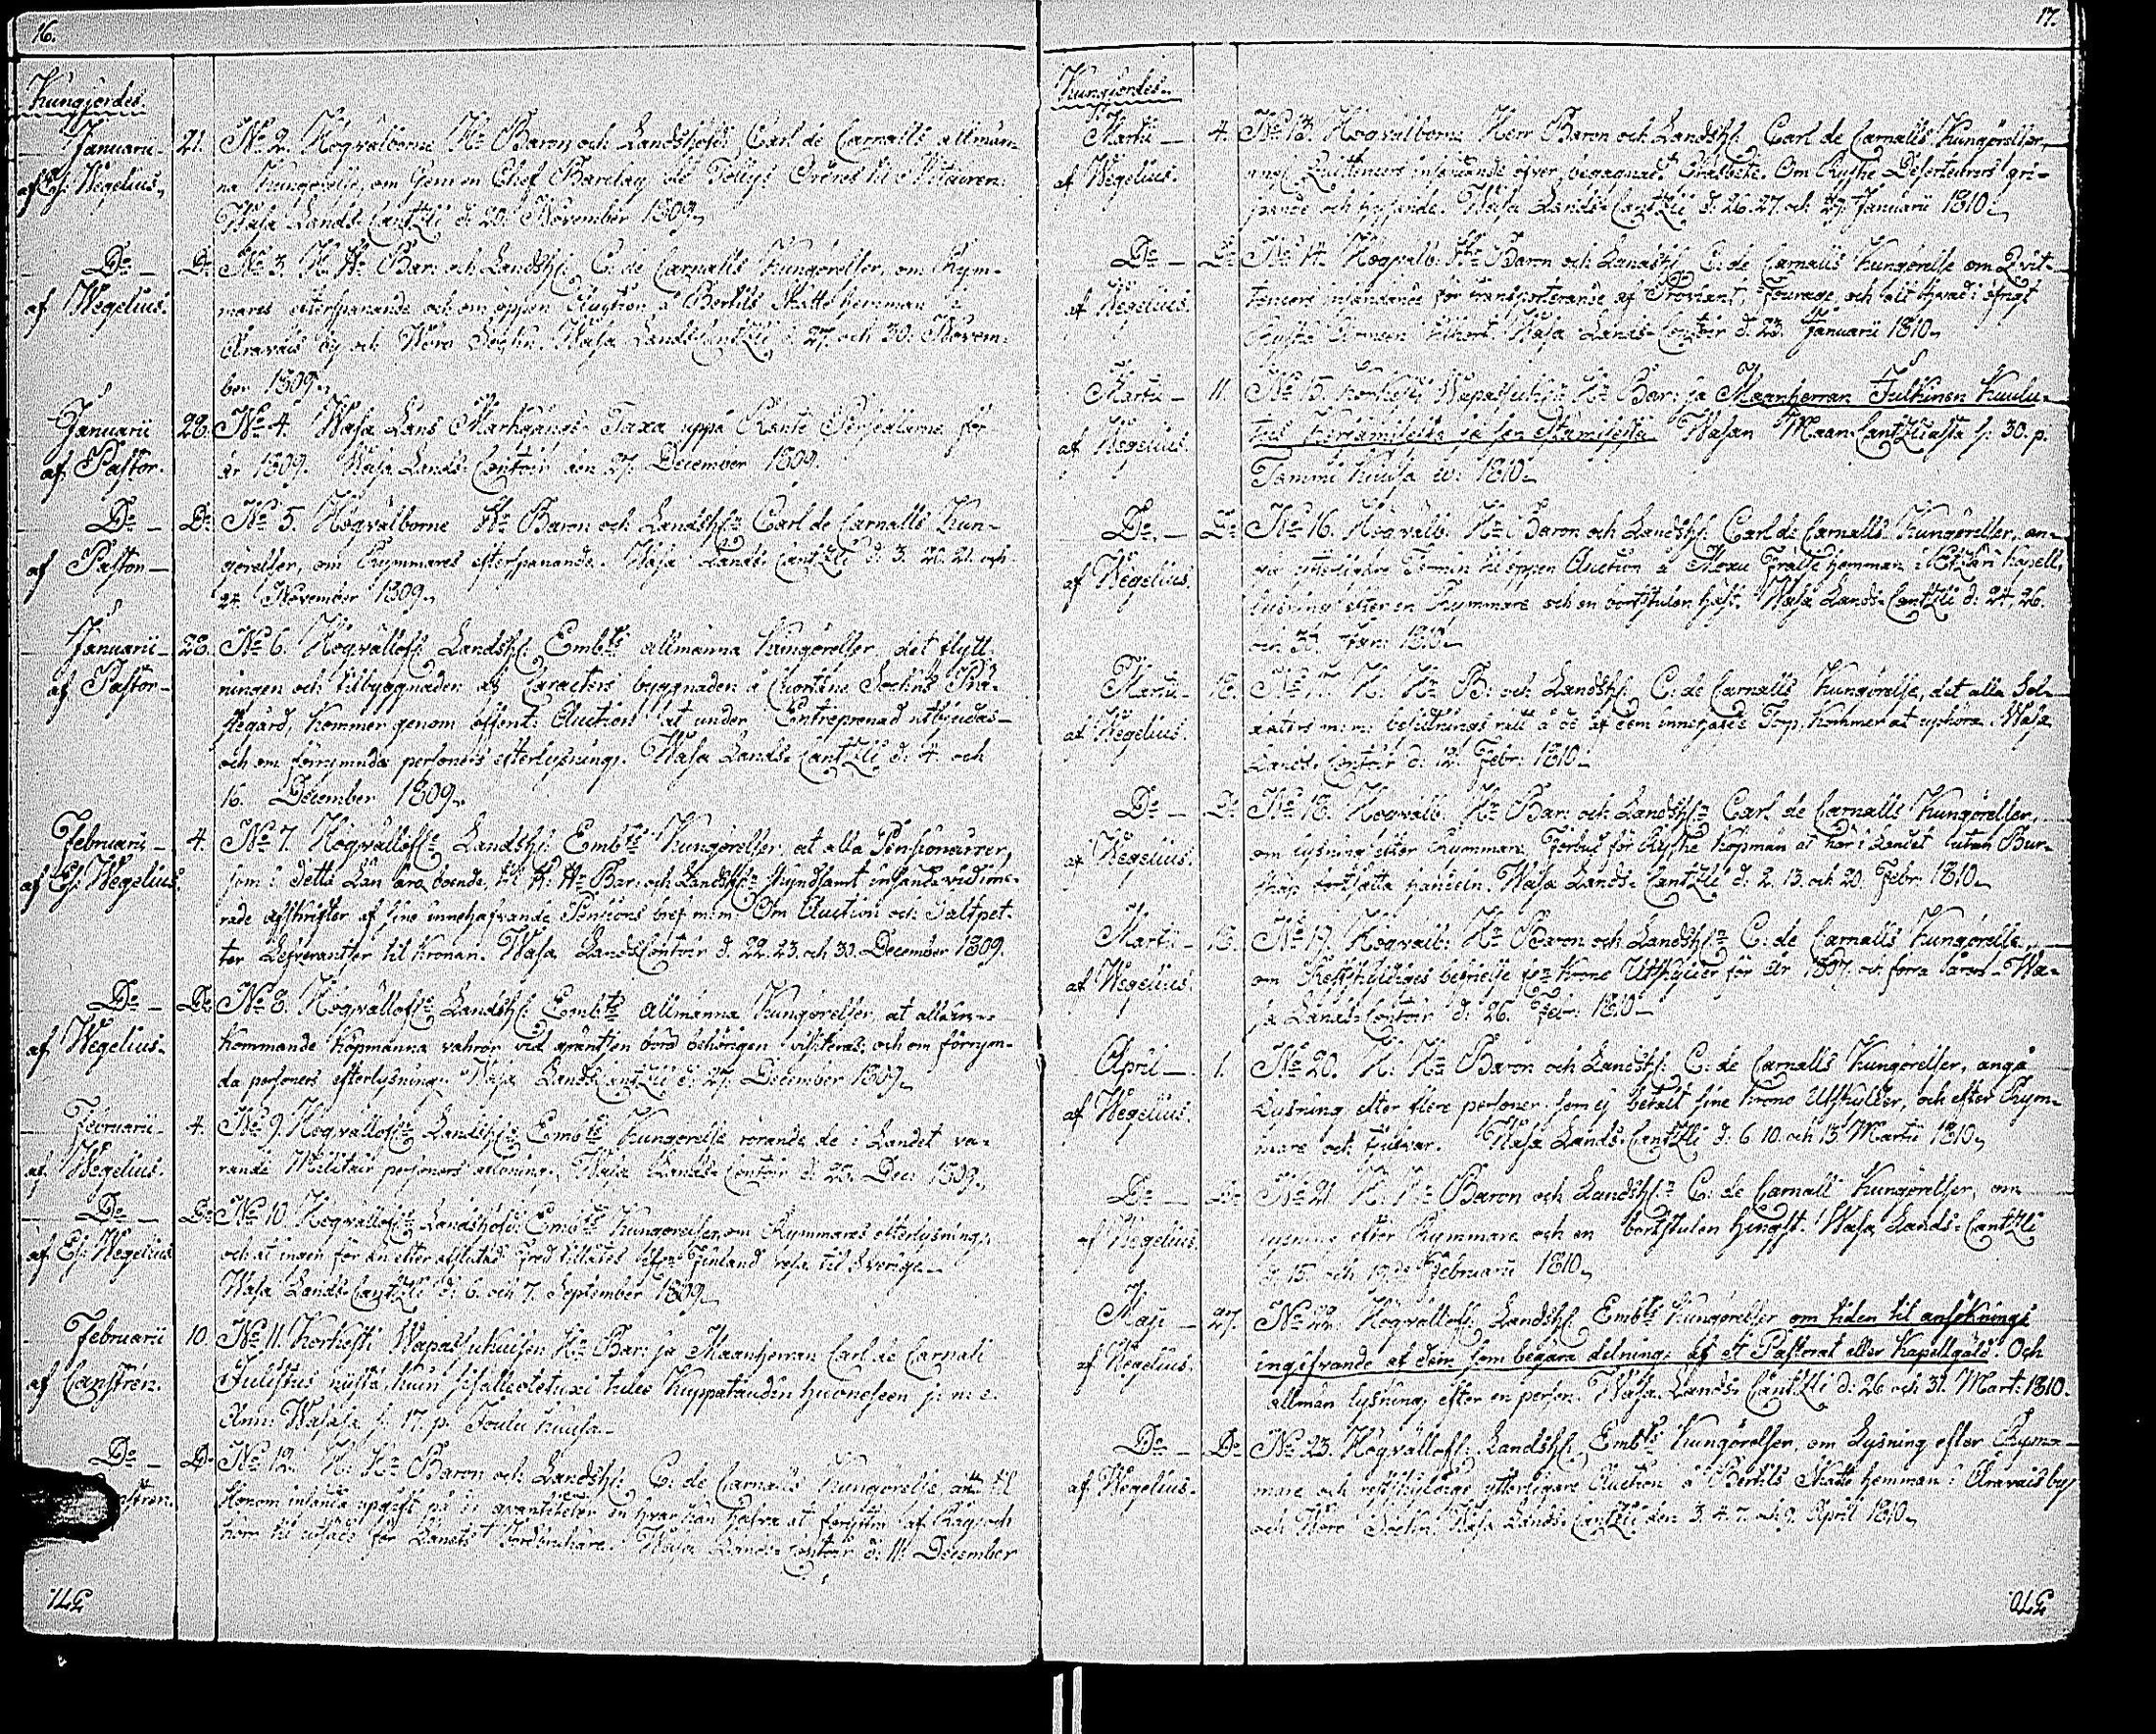 16.
Kungjordes.
Januarii 21. No 2. Högvälborne Hr Baron och Landshöfd: Carl de Carnalls allmän-
af Ej. Wegelius. na Kungörelse, om Gen: en Chef Barclay de Tollys Ordres til Militairen.
Wasa Lands-Cantzli d. 20. November 1809.
Do Do No 3. H. Hr Bar: och Landshf: C: de Carnalls Kungörelser, om Rym-
af Wegelius. mares efterspanande och om öppen Auction å Bertils Skatte hemman i
Oravais by och Wörå Sochn. Wasa Lands Cantzli d. 27. och 30. Novem-
ber 1809.
Januarii 28. No 4. Wasa Läns Markgångs-Taxa uppå Ränte Persedlarne för
af Pastor. år 1809. Wasa Lands-Contoir den 27. December 1809.
Do Do No 5. Högvälborne Hr Baron och Landshf: Carl de Carnalls Kun-
af Pastor görelser, om Rymmares efterspanande. Wasa Lands-Cantzli d: 3. 20. 21. och
24. November 1809.
Januarii 28. No 6. Högvällofl: Landshf: Embts allmänna Kungörelser, det flytt-
af Pastor ningen och tilbyggnaden af Caracters byggnaden å Chortäne Sochns Prä-
stegård, kommer genom offent: Auction at under Entreprenad utbjudas
och om förrymda personers efterlysning. Wasa Lands-Cantzli d: 4. och
16. December 1809.
Februarii 4. No 7. Högvällofl: Landshf: Embts Kungörelser, at alla Pensionairer,
af Ej. Wegelius. som i detta Län äro boende, til H. Hr Bar: och Landshf: skyndsamt insända vidime-
rade afskrifter af sine innehafvande Pensions bref m: m: Om Auction och Saltpet-
ter Lefverantser til Kronan. Wasa Lands Contoir d: 22. 23. och 30. December 1809.
Do Do No 8. Högvällofl: Landshf: Embts allmänna Kungörelser, at alla in-
af Wegelius. kommande Köpmanna vahror vid gräntsen böra behörigen visiteras; och om förrym-
da personers efterlysning. Wasa Lands Cantzli d: 27. December 1809.
Februarii 4. No 9. Högvällofl: Landshf: Embts Kungörelse rörande de i Landet va-
af Wegelius. rande Militair personers aflöning. Wasa Lands-Contoir d: 23. Dec: 1809.
Do Do No 10. Högvällofl: Landshöfd: Embts Kungörelser, om Rymmares efterlysning,
af Ej. Wegelius och at ingen för än efter afslutad Fred tillåtes ifrån Finland resa til Sverige.
Wasa Lands-Cantzli d: 6. och 7. September 1809.
Februarii 10. No 11. Korkiasti Wapasukuisen Hr Bar: ja Maanherran Carl de Carnall
af Canstrén. Julistus niistä, kuin tulee
Ann: Wasasa s: 17. p. Joulu kuusa.
Do D. No 12. H: Hr Baron och Landshf: C: de Carnalls Kungörelse, at til
Honom insända upgift på de qvantiteter en hvar kan hafva at försälja af Råg och
Korn til utsäde för Landets Jordbrukare. Wasa Lands-Contoir d: 11. December
371.
17.
Kungjordes.
Martii 4. No 13. Högvälborne Herr Baron och Landshf: Carl de Carnalls Kungörelser,
af Wegelius. ang: Quittencers insändande öfver begagnad Dragbete. Om Ryske Deserteurers gri-
pande och hysande. Wasa Lands-Cantzli d: 26. 27. och 29. Januarii 1810.
Do Do No 14. Högvälb: Hr Baron och Landshf: C: de Carnalls Kungörelse om Qvit-
af Wegelius. tencers insändande för transporterande af Proviant, Fourage, och alt hvad i öfrigt
Ryska Arméen tilhört. Wasa Lands-Contoir d: 23. Januarii 1810.
Martii 11. No 15. Korkiasti Wapasukuis: Hr Bar: ja Maanherran Julkinen Kuulu-
af Wegelius. tus Wasan Maan-Cantzliasta s: 30. p.
Tammi kuusa w: 1810.
Do Do No 16. Högvälb: Hr Baron och Landshf: Carl de Carnalls Kungörelser, an-
af Wegelius. gå ytterligare Termin til öppen Auction å hemman i Kapell,
lysning efter en Rymmare och en bortstulen häst. Wasa Lands-Cantzli d: 24. 26.
och 30. Jan: 1810.
Martii 18. No 17. H: Hr B: och Landshf: C: de Carnalls Kungörelse, det alla Sol-
af Wegelius. daters m: m: besittnings rätt å de af dem innehafde Torp, kommer at uphöra. Wasa
Lands-Contoir d: 12. Febr: 1810.
Do Do No 18. Högvälb: Hr Bar: och Landshf: Carl de Carnalls Kungörelser,
af Wegelius. om lysning efter Rymman. Förbud för Ryske Köpmän at här i Landet utan Bur-
skap fortsätta handeln. Wasa Lands-Cantzli d: 2. 13. och 20. Febr: 1810.
Martii 18. No 19. Högvälb: Hr Baron och Landshf: C: de Carnalls Kungörelse,
af Wegelius. om Restskyldiges befrielse från Krono Utskylder för år 1807. och förra åren. Wa-
sa Lands-Contoir d: 26. Febr: 1810.
April 1. No 20. H: Hr Baron och Landshf: C: de Carnalls Kungörelser, angå
af Wegelius. Lysning efter flere personer som ej betalt sine Krono Utskulder, och efter Rym-
mare och tjufvar. Wasa Lands-Cantzli d: 6. 10. och 13. Martii 1810.
Do Do No 21. H: Hr Baron och Landshf: C: de Carnall Kungörelser, om
af Wegelius. lysning efter Rymmare och en bortstulen hingst. Wasa Lands-Cantzli
d: 15. och 19. de Februarii 1810.
Maji 27. No 22. Högvällofl: Landshf: Embts Kungörelser om tiden til ansöknings
af Wegelius. ingifvande af dem som begära delning af et Pastorat eller Kapellgäld. Och
allmän lysning efter en person. Wasa Lands Cantzli d: 26 och 31. Mart: 1810.
Do Do No 23. Högvällofl: Landshf: Embts Kungörelser, om Lysning efter Rym-
af Wegelius. mare och ytterligare Auction å Bertils Skatte hemman i Oravais by
och Wörå Sochn. Wasa Lands-Cantzli den 3. 4. 7. och 9. April 1810.
370.